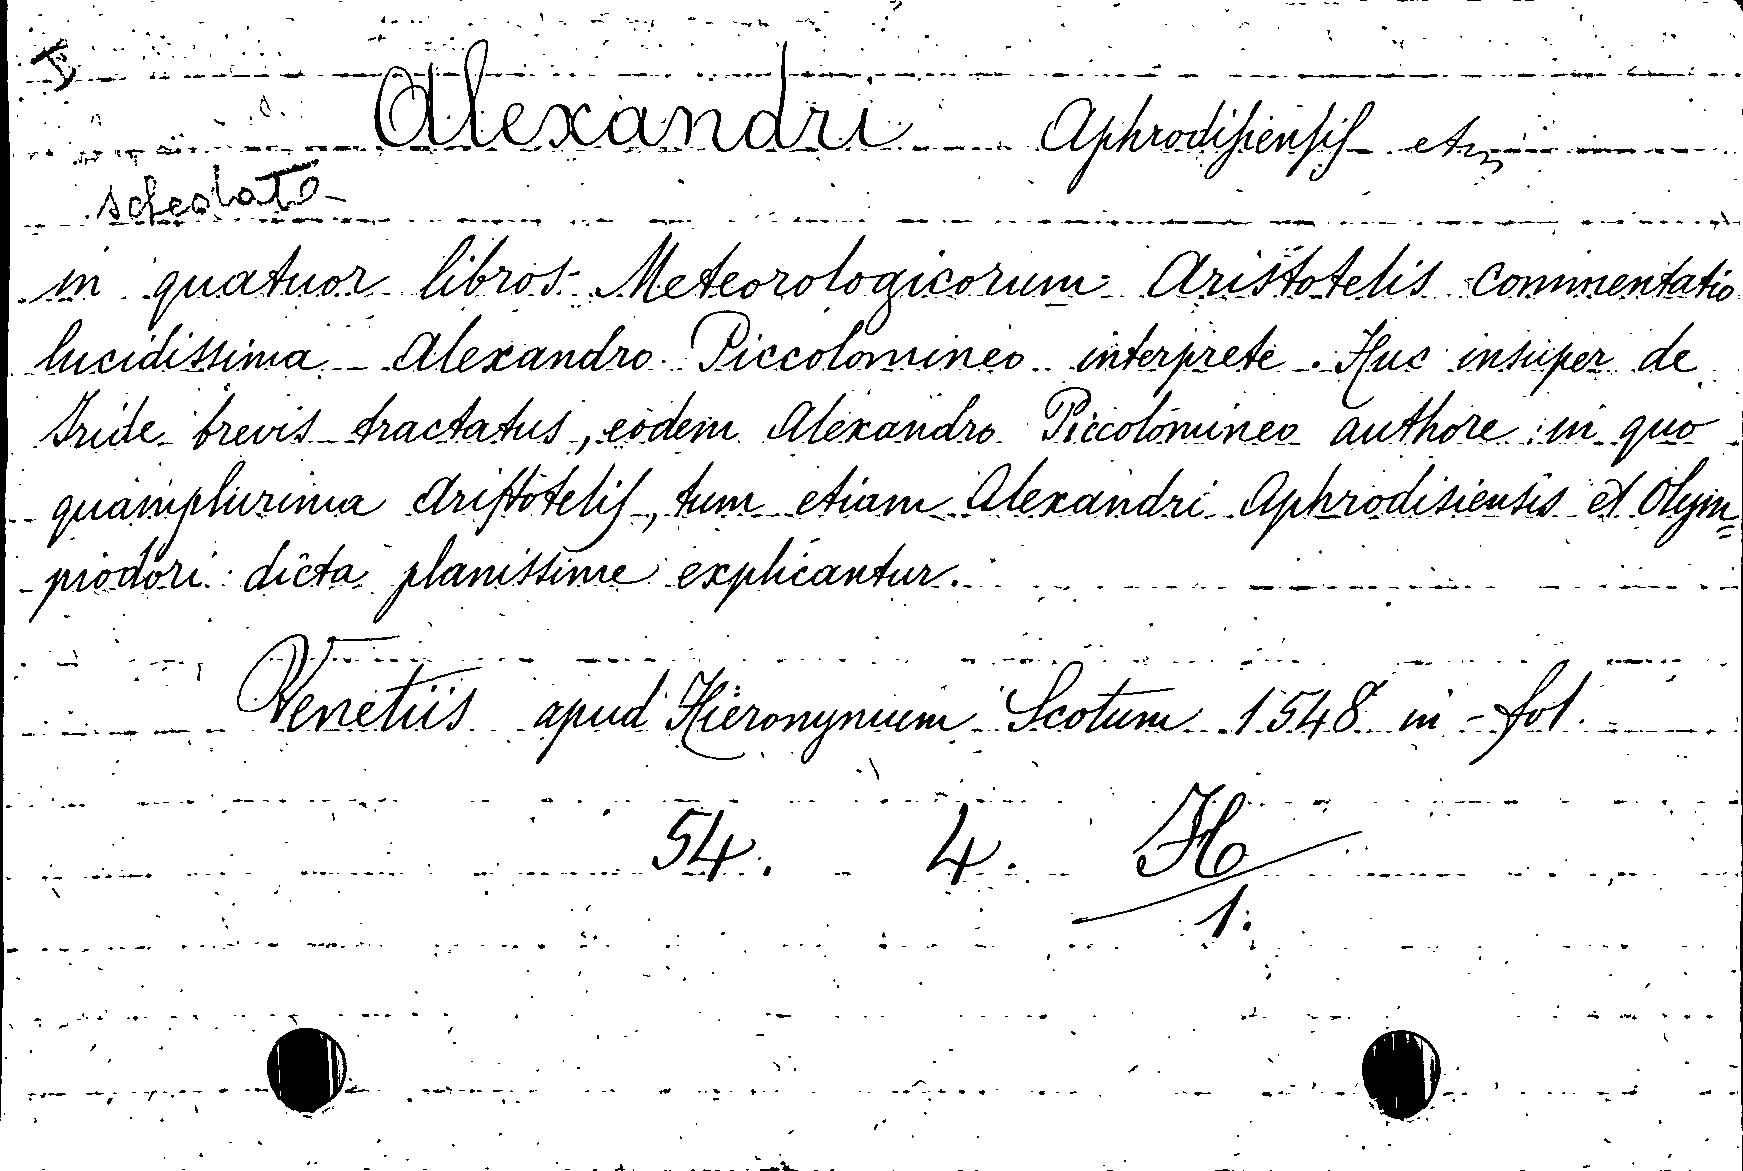 Alexandri Aphrodisiensis
schedato
in quatuor libros Meteorologicorum Aristotelis commentatio
lucidissima Alexandro Piccolomineo interprete. Huc insuper de
Iride brevis tractatus, eodem Alexandro Piccolomineo authore: in quo
quamplurima Aristotelis, tum etiam Alexandri Aphrodisiensis et Olym=
piodori dicta planissime explicantur.
Venetiis apud Hieronymum Scotum 1548 in-fol.
54. 4. H
1.